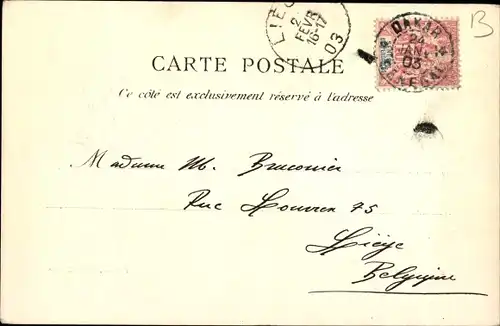 LIEG
2
FEVR
16-17
03
DAKAR
24
JANV
03
SENEGAL
B
CARTE POSTALE
Ce côté est exclusivement réservé à l'adresse
Madame M. Braconier
Rue Louvrex 75
Liège
Belgique